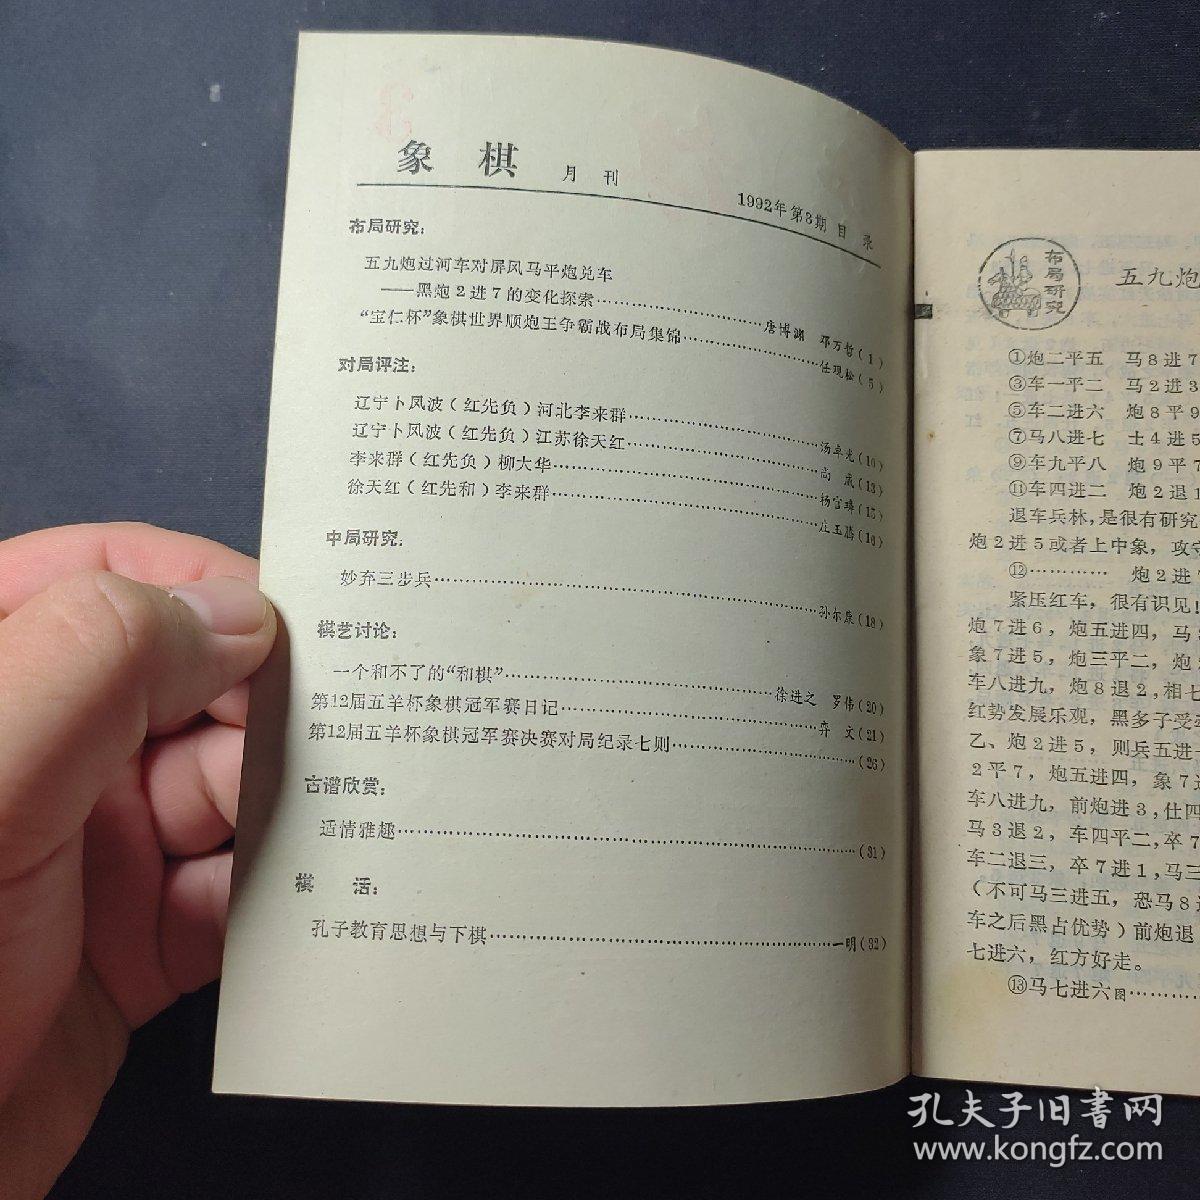 象棋 月刊
1992年第3期 目录
布局研究:
五九炮过河车对屏风马平炮兑车
——黑炮2进7的变化探索…………………唐博渊 邓万哲(1)
“宝仁杯”象棋世界顺炮王争霸战布局集锦…………………任观松(5)
对局评注:
辽宁卜凤波(红先负)河北李来群…………………汤卓光(10)
辽宁卜凤波(红先负)江苏徐天红…………………尚威(13)
李来群(红先负)柳大华…………………杨官璘(15)
徐天红(红先和)李来群…………………庄玉腾(16)
中局研究:
妙弃三步兵…………………孙尔康(18)
棋艺讨论:
一个和不了的“和棋”…………………徐进之 罗伟(20)
第12届五羊杯象棋冠军赛日记…………………弈文(21)
第12届五羊杯象棋冠军赛决赛对局纪录七则…………………(26)
古谱欣赏:
适情雅趣…………………(31)
棋 话:
孔子教育思想与下棋…………………一明(32)
布局研究
五九炮
①炮二平五 马8进7
③车一平二 马2进3
⑤车二进六 炮8平9
⑦马八进七 士4进5
⑨车九平八 炮9平7
⑪车四进二 炮2退1
退车兵林,是很有研究
炮2进5或者上中象,攻守
⑫………… 炮2进7
紧压红车,很有识见!
炮7进6,炮五进四,马
象7进5,炮三平二,炮
车八进九,炮8退2,相七
红势发展乐观,黑多子受
乙、炮2进5,则兵五进一
2平7,炮五进四,象7进
车八进九,前炮进3,仕四
马3退2,车四平二,卒7
车二退三,卒7进1,马三
(不可马三进五,恐马8进
车之后黑占优势)前炮退
七进六,红方好走。
⑬马七进六图…………
孔夫子旧书网
www.kongfz.com